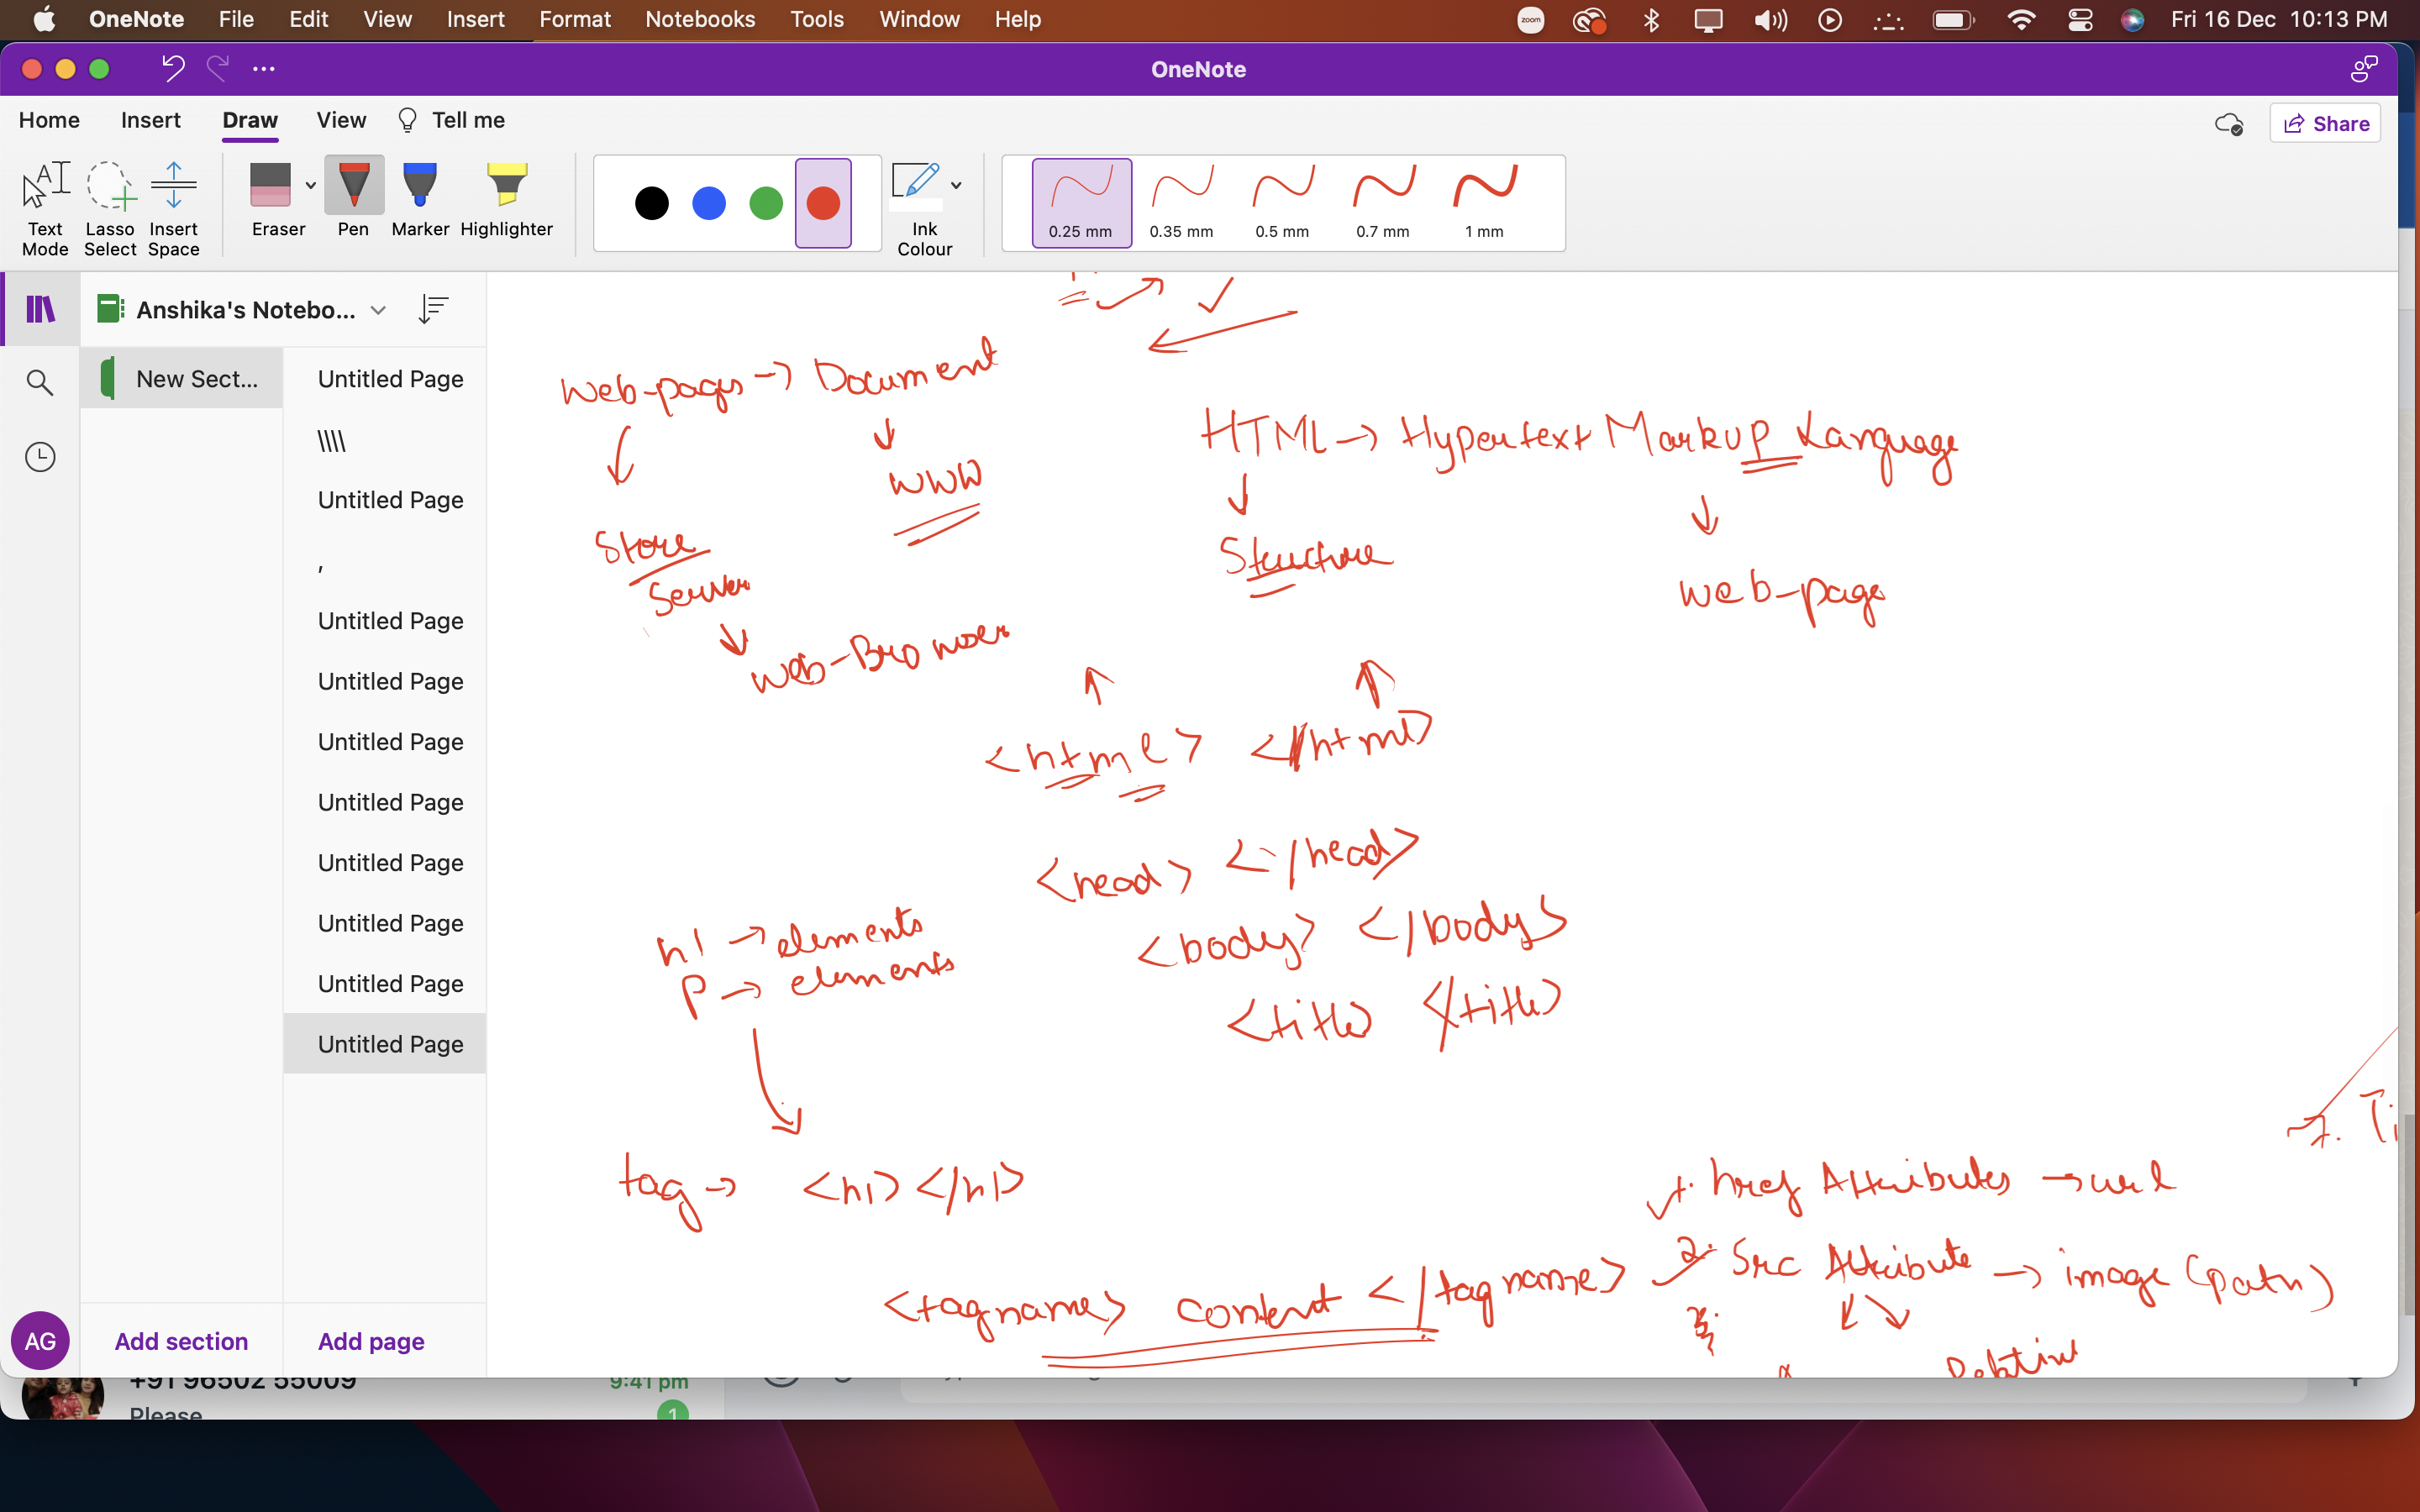 OneNote File Edit View Insert Format Notebooks Tools Window Help
zoom
Fri 16 Dec 10:13 PM
OneNote
Home Insert Draw View Tell me
Share
Text Mode
Lasso Select
Insert Space
Eraser
Pen
Marker
Highlighter
Ink Colour
0.25 mm 0.35 mm 0.5 mm 0.7 mm 1 mm
Anshika's Notebo...
New Sect...
Untitled Page
\\\\
Untitled Page
,
Untitled Page
Untitled Page
Untitled Page
Untitled Page
Untitled Page
Untitled Page
Untitled Page
Untitled Page
Add section
Add page
AG
web-pages → Document
↓ ↓
www
Store
Server
↓
web-Browser
HTML → Hypertext Markup Language
↓ ↓
Structure
web-page
↑ ↑
<html> </html>
<head> </head>
<body> </body>
<title> </title>
h1 → elements
p → elements
tag → <h1></h1>
<tagname> content </tagname>
1. href Attributes → url
2. Src Attribute → image (path)
+91 96502 55009
9:41 pm
Please
1